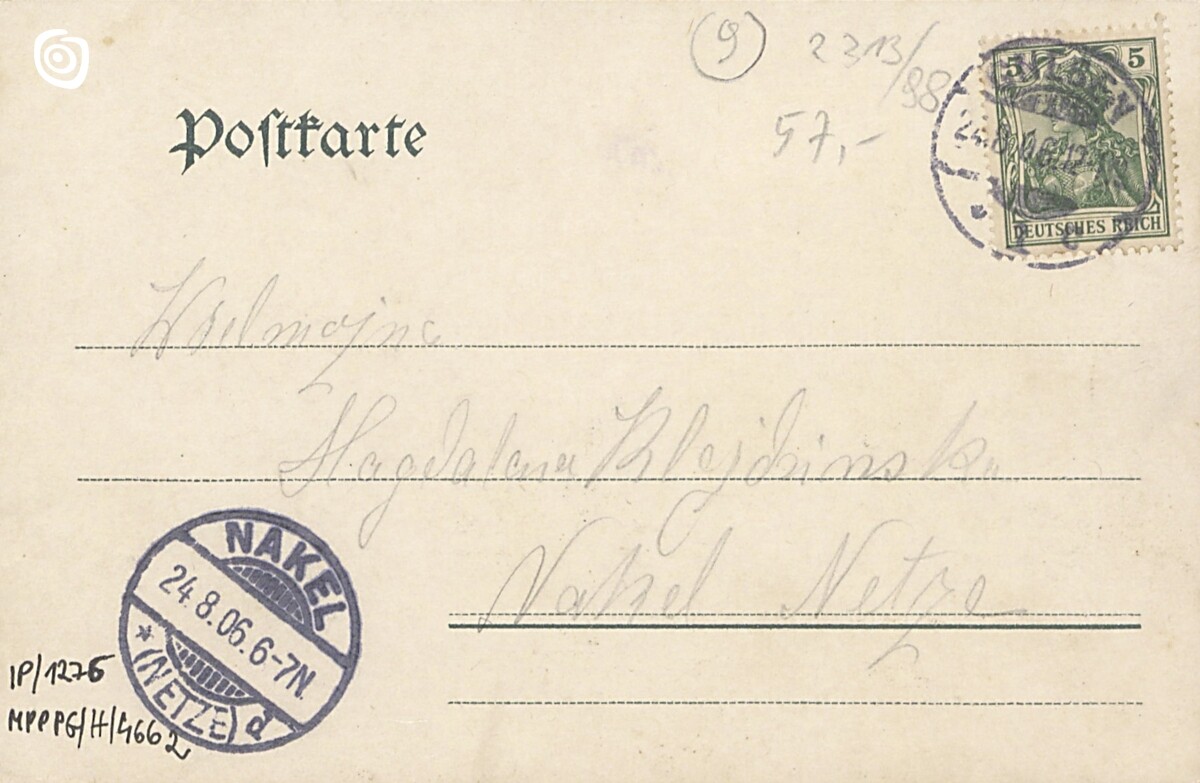 (9) 2313/98
57,-
Postkarte
5 5
24.8.06.12
DEUTSCHES REICH
Wielmożna
Magdalena Klejdzinska
Nakel Netze
NAKEL
24.8.06.6-7N.
* (NETZE) d
IP/1276
MPPPG/H/4662